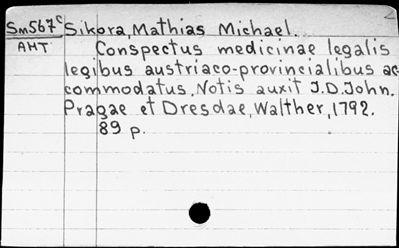 Sm567c Sikora, Mathias Michael.
AHT Conspectus medicinae legalis
legibus austriaco-provincialibus ac
commodatus, Notis auxit J.D. John.
Pragae et Dresdae, Walther, 1792.
89 p.